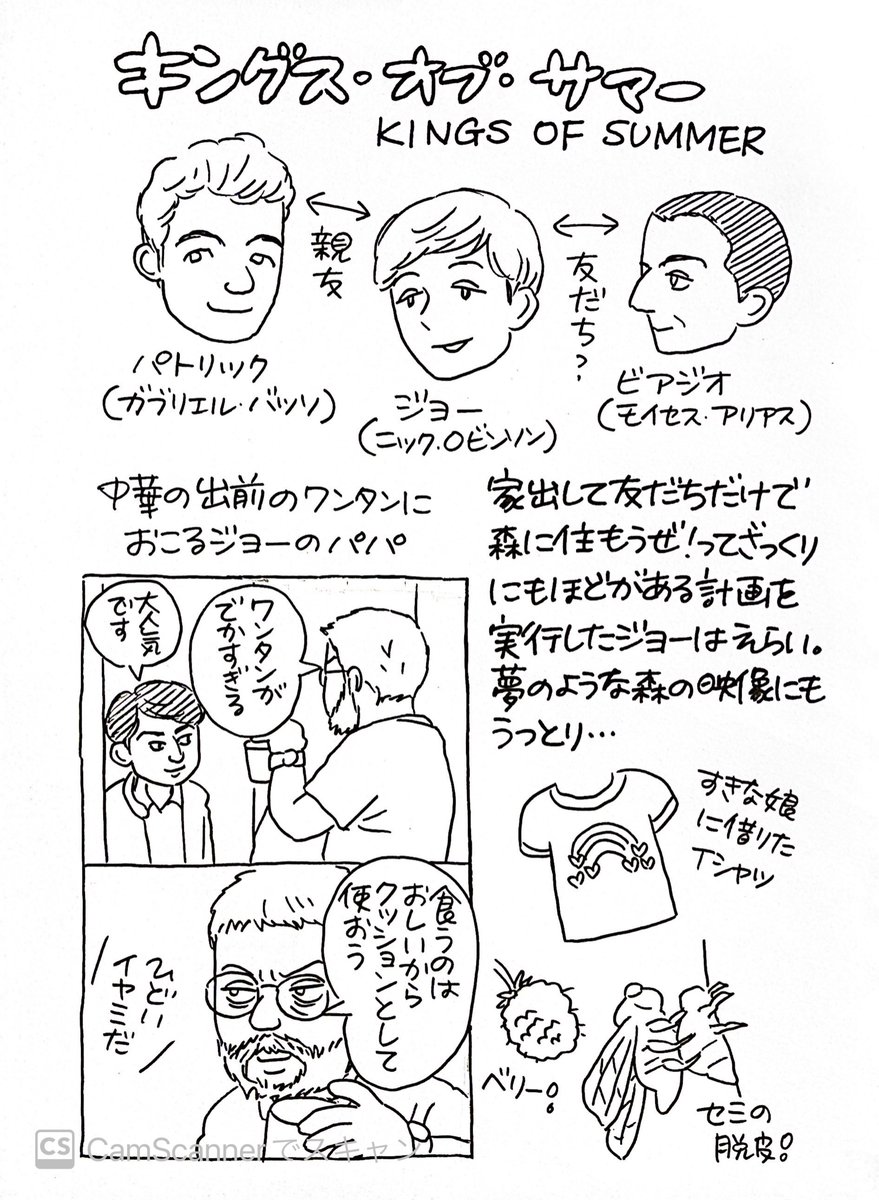 キングス・オブ・サマー
KINGS OF SUMMER
親友
友だち?
パトリック
(ガブリエル・バッソ)
ジョー
(ニック.ロビンソン)
ビアジオ
(モイセス・アリアス)
中華の出前のワンタンに
おこるジョーのパパ
家出して友だちだけで
森に住もうぜ!ってざっくり
にもほどがある計画を
実行したジョーはえらい。
夢のような森の映像にも
うっとり…
ワンタンが
でかすぎる
大人気
です
食うのは
おしいから
クッションとして
使おう
ひどい
イヤミだ
すきな娘
に借りた
Tシャツ
ベリー!
セミの
脱皮!
CS CamScannerでスキャン